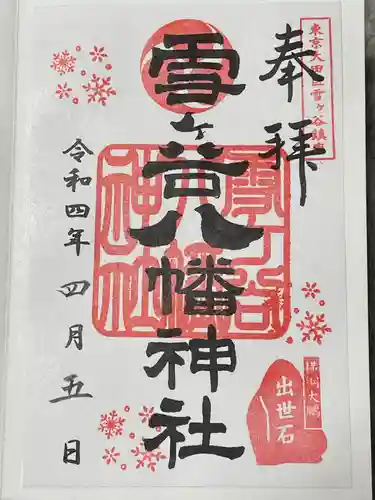 東京大田区雪ヶ谷鎮座
奉拝
雪ヶ谷八幡神社
雪ヶ谷
神社
令和四年四月五日
横綱大鵬
出世石